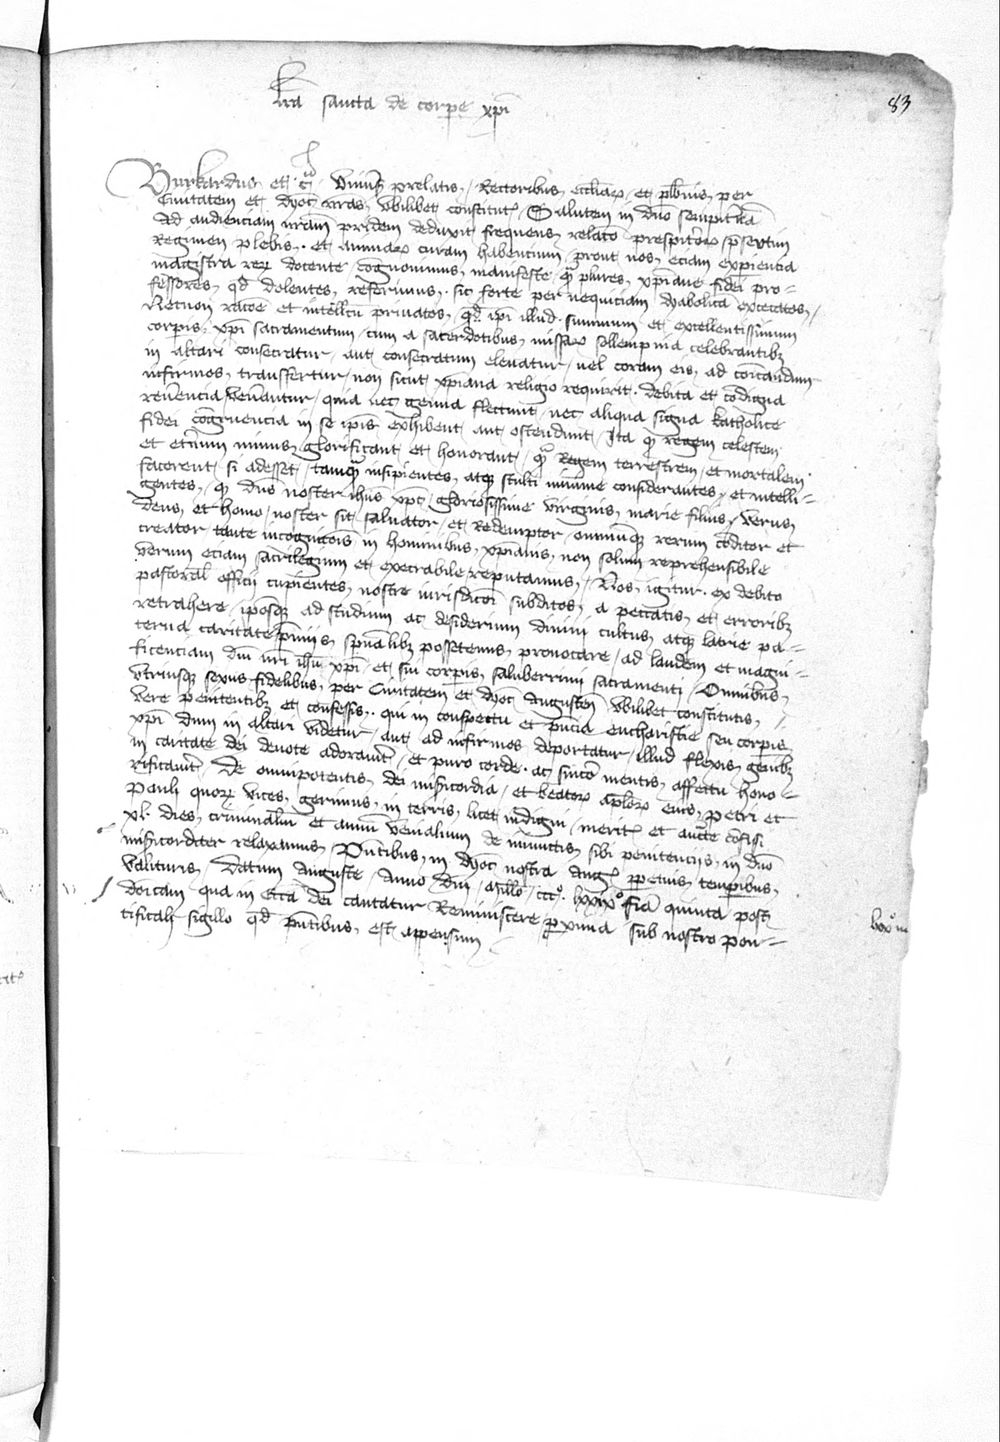 Lra̅ sancta de corpe xpi̅
83
Burkardus et c̅ Univ̅sis prelatis, Rectoribus eccl̅iarꝝ et pl̅bnis, per
Civitatem et dyoc̅ n̅ras ubilibet constitut̅ Salutem in d̅no sempit̅na̅
Ad audienciam n̅ram pridem deduxit frequens relac̅o presp̅iterorꝝ p̅sertim
Regimen plebis, et animarꝝ curam habencium prout nos, eciam exp̅iencia
magistra rerꝝ docente, cogno̅vimus, manifeste, qꝫ plures, xp̅iane fidei pro-
fessores, qd̅ dolentes, referimus, sic forte per nequiciam dyabolica̅ excecatos,
Necnon rac̅oe et intell̅cu privatos, qd̅ ip̅i illud summum et excellentissimum
corpis, xp̅i sacramentum, cum a sacerdotibus, missarꝝ sollempnia celebrantibꝫ
in altari consecratur, aut consecratum elevatur, vel coram eis, ad co̅icandum
infirmos, transfertur, non sicut xp̅iana religio requirit, debita et co̅digna
rev̅encia ven̅antur, quia nec genua flectunt, nec aliqua signa katholice
fidei congruencia in se ipis exhibent aut ostendunt, Ita qꝫ regem celestem
et et̅num minus, glorificant et honorant, qꝫ Regem terrestrem, et mortalem
facerent, si adesset, tamqꝫ insipientes, atqꝫ stulti minime considerantes, et intelli-
gentes, qꝫ d̅ns noster ih̅us xp̅c, gloriosissime virginis, marie filius, verus,
deus, et homo, noster sit salvator, et Redemptor, omniumqꝫ rerum co̅ditor et
creator, tante incognic̅ois in hominibus, xp̅ianis, non solum reprehensibile
verum eciam sacrilegium et execrabile reputamus, Nos, igitur ex debito
pastoral̅ officii cupientes, nostre iurisdic̅oi subditos, a peccatis, et erroribꝫ
retrahere, ip̅osqꝫ ad studium ac desiderium divini cultus, atqꝫ latrie pa-
terna caritate p̅miis, sp̅ualibꝫ possetenus, provocare, ad laudem et magni-
ficenciam d̅ni n̅ri ih̅u xp̅i et sui corpis, saluberrimi sacramenti, Omnibus,
utriusqꝫ sexus fidelibus, per Civitatem et dyoc̅ Augusten̅ ubilibet constitutis,
vere penitentibꝫ et confessis, qui in conspectu et p̅ncia eucharistie seu corpis
xp̅i dum in altari videtur, aut ad infirmos deportatur, illud flexis, genibꝫ
in caritate dei devote adorav̅int, et puro corde ac sinc̅o mentis, affectu hono-
rificav̅int, De omnipotentis, dei mi̅sicordia, et beatorꝝ ap̅lorꝝ eius, petri et
Pauli quorꝝ vices, gerimus, in terris, licet indigni, merit̅ et auc̅te co̅fisi
xl dies, criminaliu̅ et annu̅ venialium de iniunctis, sibi penitenciis, in d̅no
mi̅sicorditer relaxamus, P̅ntibus, in dyoc̅ nostra Aug̅ p̅petuis, temp̅ibus,
valituris, Datum Auguste, Anno d̅ni, Mill̅o ccc° lxxix° fi̅a quinta post
do̅icam qua in ecc̅a dei cantatur Reminiscere p̅xima sub nostro pon-
tificali sigillo qd̅ p̅ntibus, est appensum